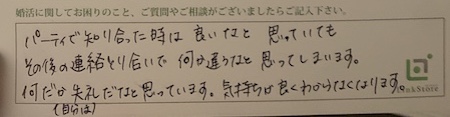 婚活に関してお困りのこと、ご質問やご相談がございましたらご記入下さい。
パーティで知り合った時は良いなと思っていても
その後の連絡とり合いで何か違うなと思ってしまいます。
何だか失礼だなと思っています。気持ちが良くわからなくなります。
(自分は)
nkStore